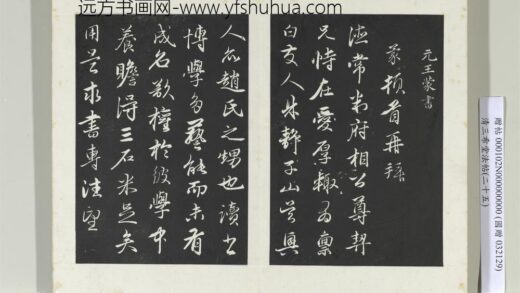 远方书画网-www.yfshuhua.com
元王蒙書
蒙頓首再拜
德常判府相公尊契
兄恃在愛厚輒為稟
白友人林靜子山吳興
人亦趙氏之甥也讀書
博學多藝能而未有
成名欲權於彼學中
養贍得三石米足矣
用是求書專注望
贈帖 000102N000000000 (國贈 032129)
清三希堂法帖(二十五)